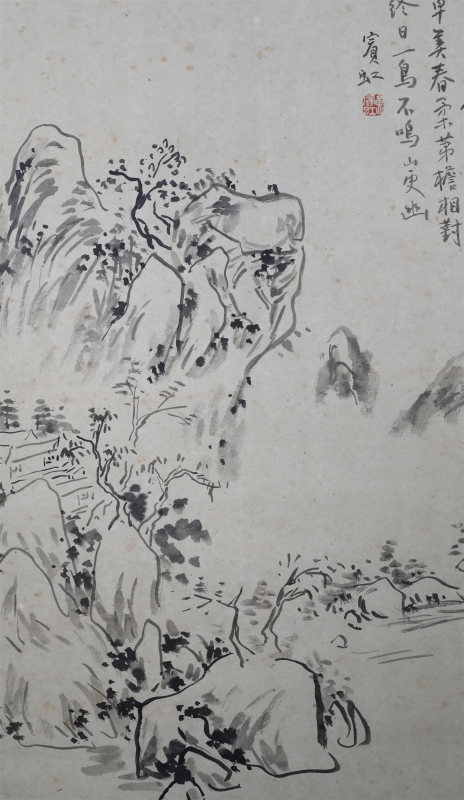 草弄春柔茅檐相對
終日一鳥不鳴山更幽
賓虹